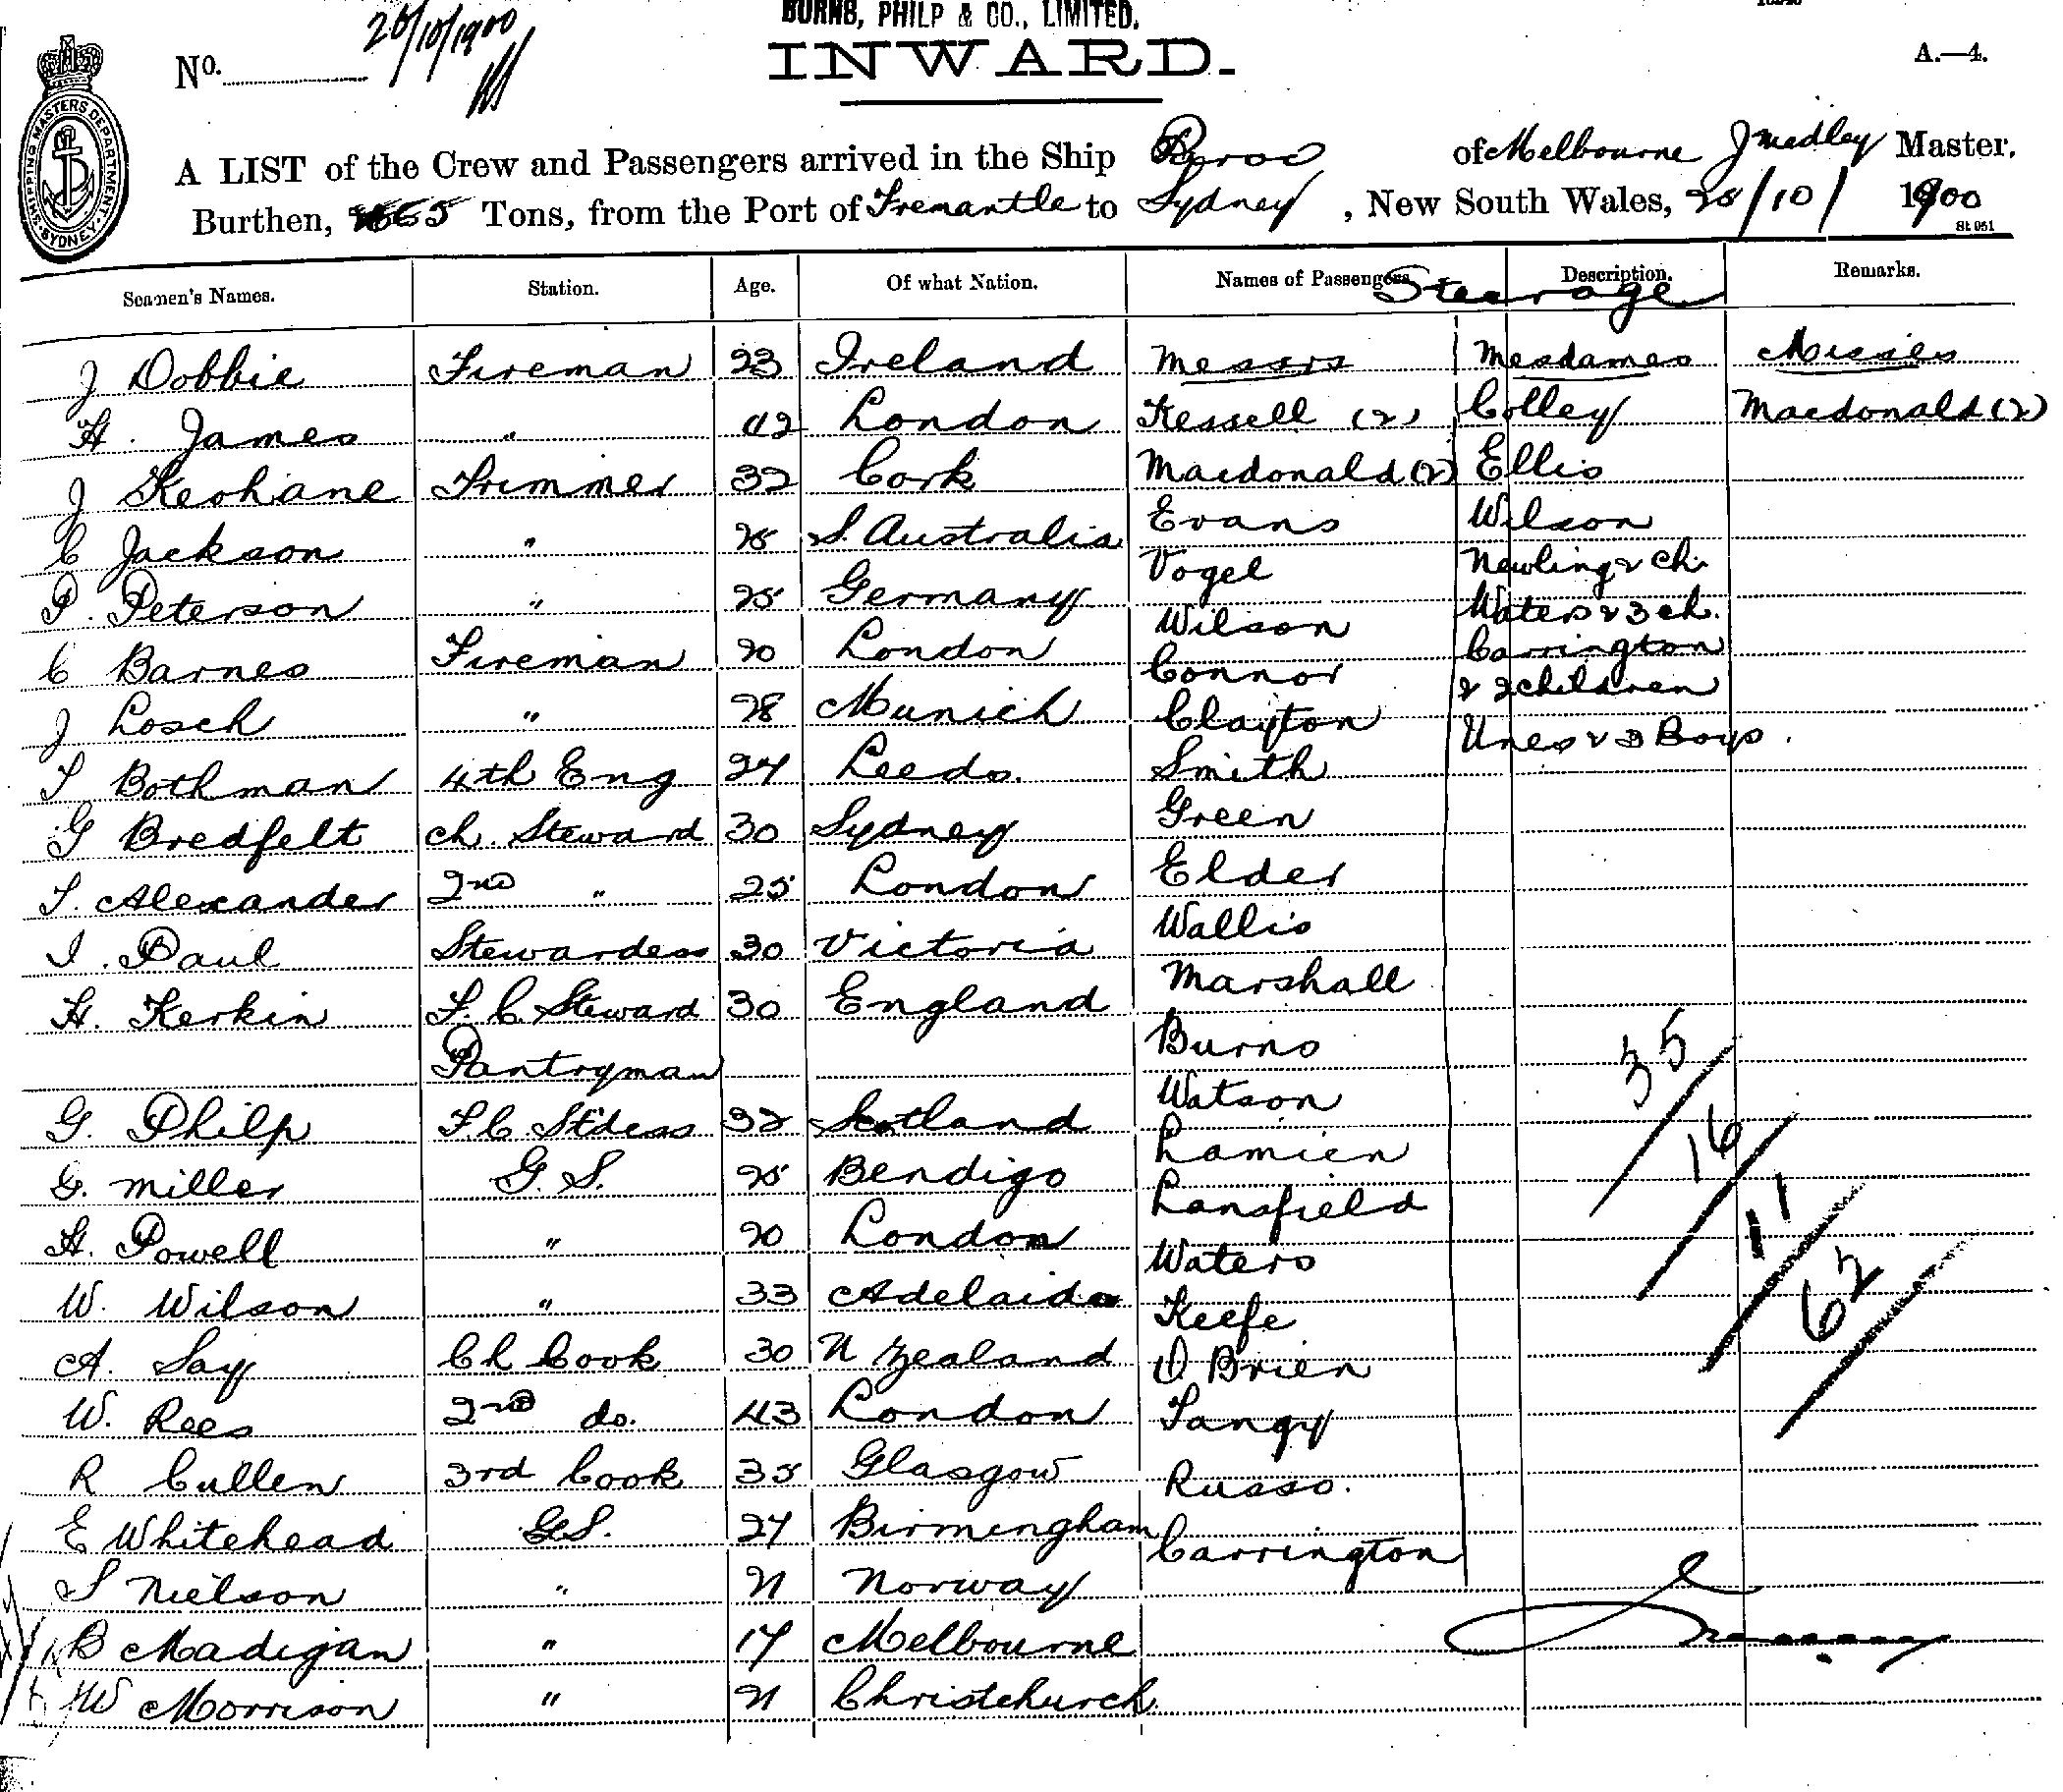 BURNS, PHILP & CO., LIMITED.
26/10/1900
No.
INWARD.
A.—4.
SHIPPING MASTERS DEPARTMENT. SYDNEY.
A LIST of the Crew and Passengers arrived in the Ship of Melbourne J Medley Master,
Burthen, Tons, from the Port of Fremantle to Sydney, New South Wales, 25/10/ 1900
St 951
Seamen's Names. Station. Age. Of what Nation. Names of Passengers Description. Remarks.
Steerage
J Dobbie Fireman 23 Ireland Messrs Mesdames Misses
H. James " 42 London Kessell (2) Colley Macdonald (2)
J Keohane Trimmer 32 Cork Macdonald (2) Ellis
C Jackson " 25 S. Australia Evans Wilson
P. Peterson " 25 Germany Vogel Newling & ch.
C Barnes Fireman 20 London Wilson Waters & 3 ch.
J Losch " 28 Munich Connor Carrington
& 2 children
T Bothman 4th Eng 27 Leeds. Clayton Unes & 3 Boys.
G Bredfelt ch. Steward 30 Sydney Smith
T. Alexander 2nd " 25 London Green
I. Paul Stewardess 30 Victoria Elder
H. Kerkin F. C. Steward 30 England Wallis
Pantryman Marshall
G. Philp F.C. Stdess 32 Scotland Burns
G. Miller G. S. 25 Bendigo Watson
H. Powell " 20 London Lamien
W. Wilson " 33 Adelaide Lansfield
A. Say Ch Cook 30 N Zealand Waters
W. Rees 2nd do. 43 London Keefe
R Cullen 3rd Cook 35 Glasgow O Brien
E Whitehead G.S. 27 Birmingham Tangy
S Nielson " 21 Norway Russo.
B Madigan " 17 Melbourne Carrington
W Morrison " 21 Christchurch
35/
16/
11/
62/